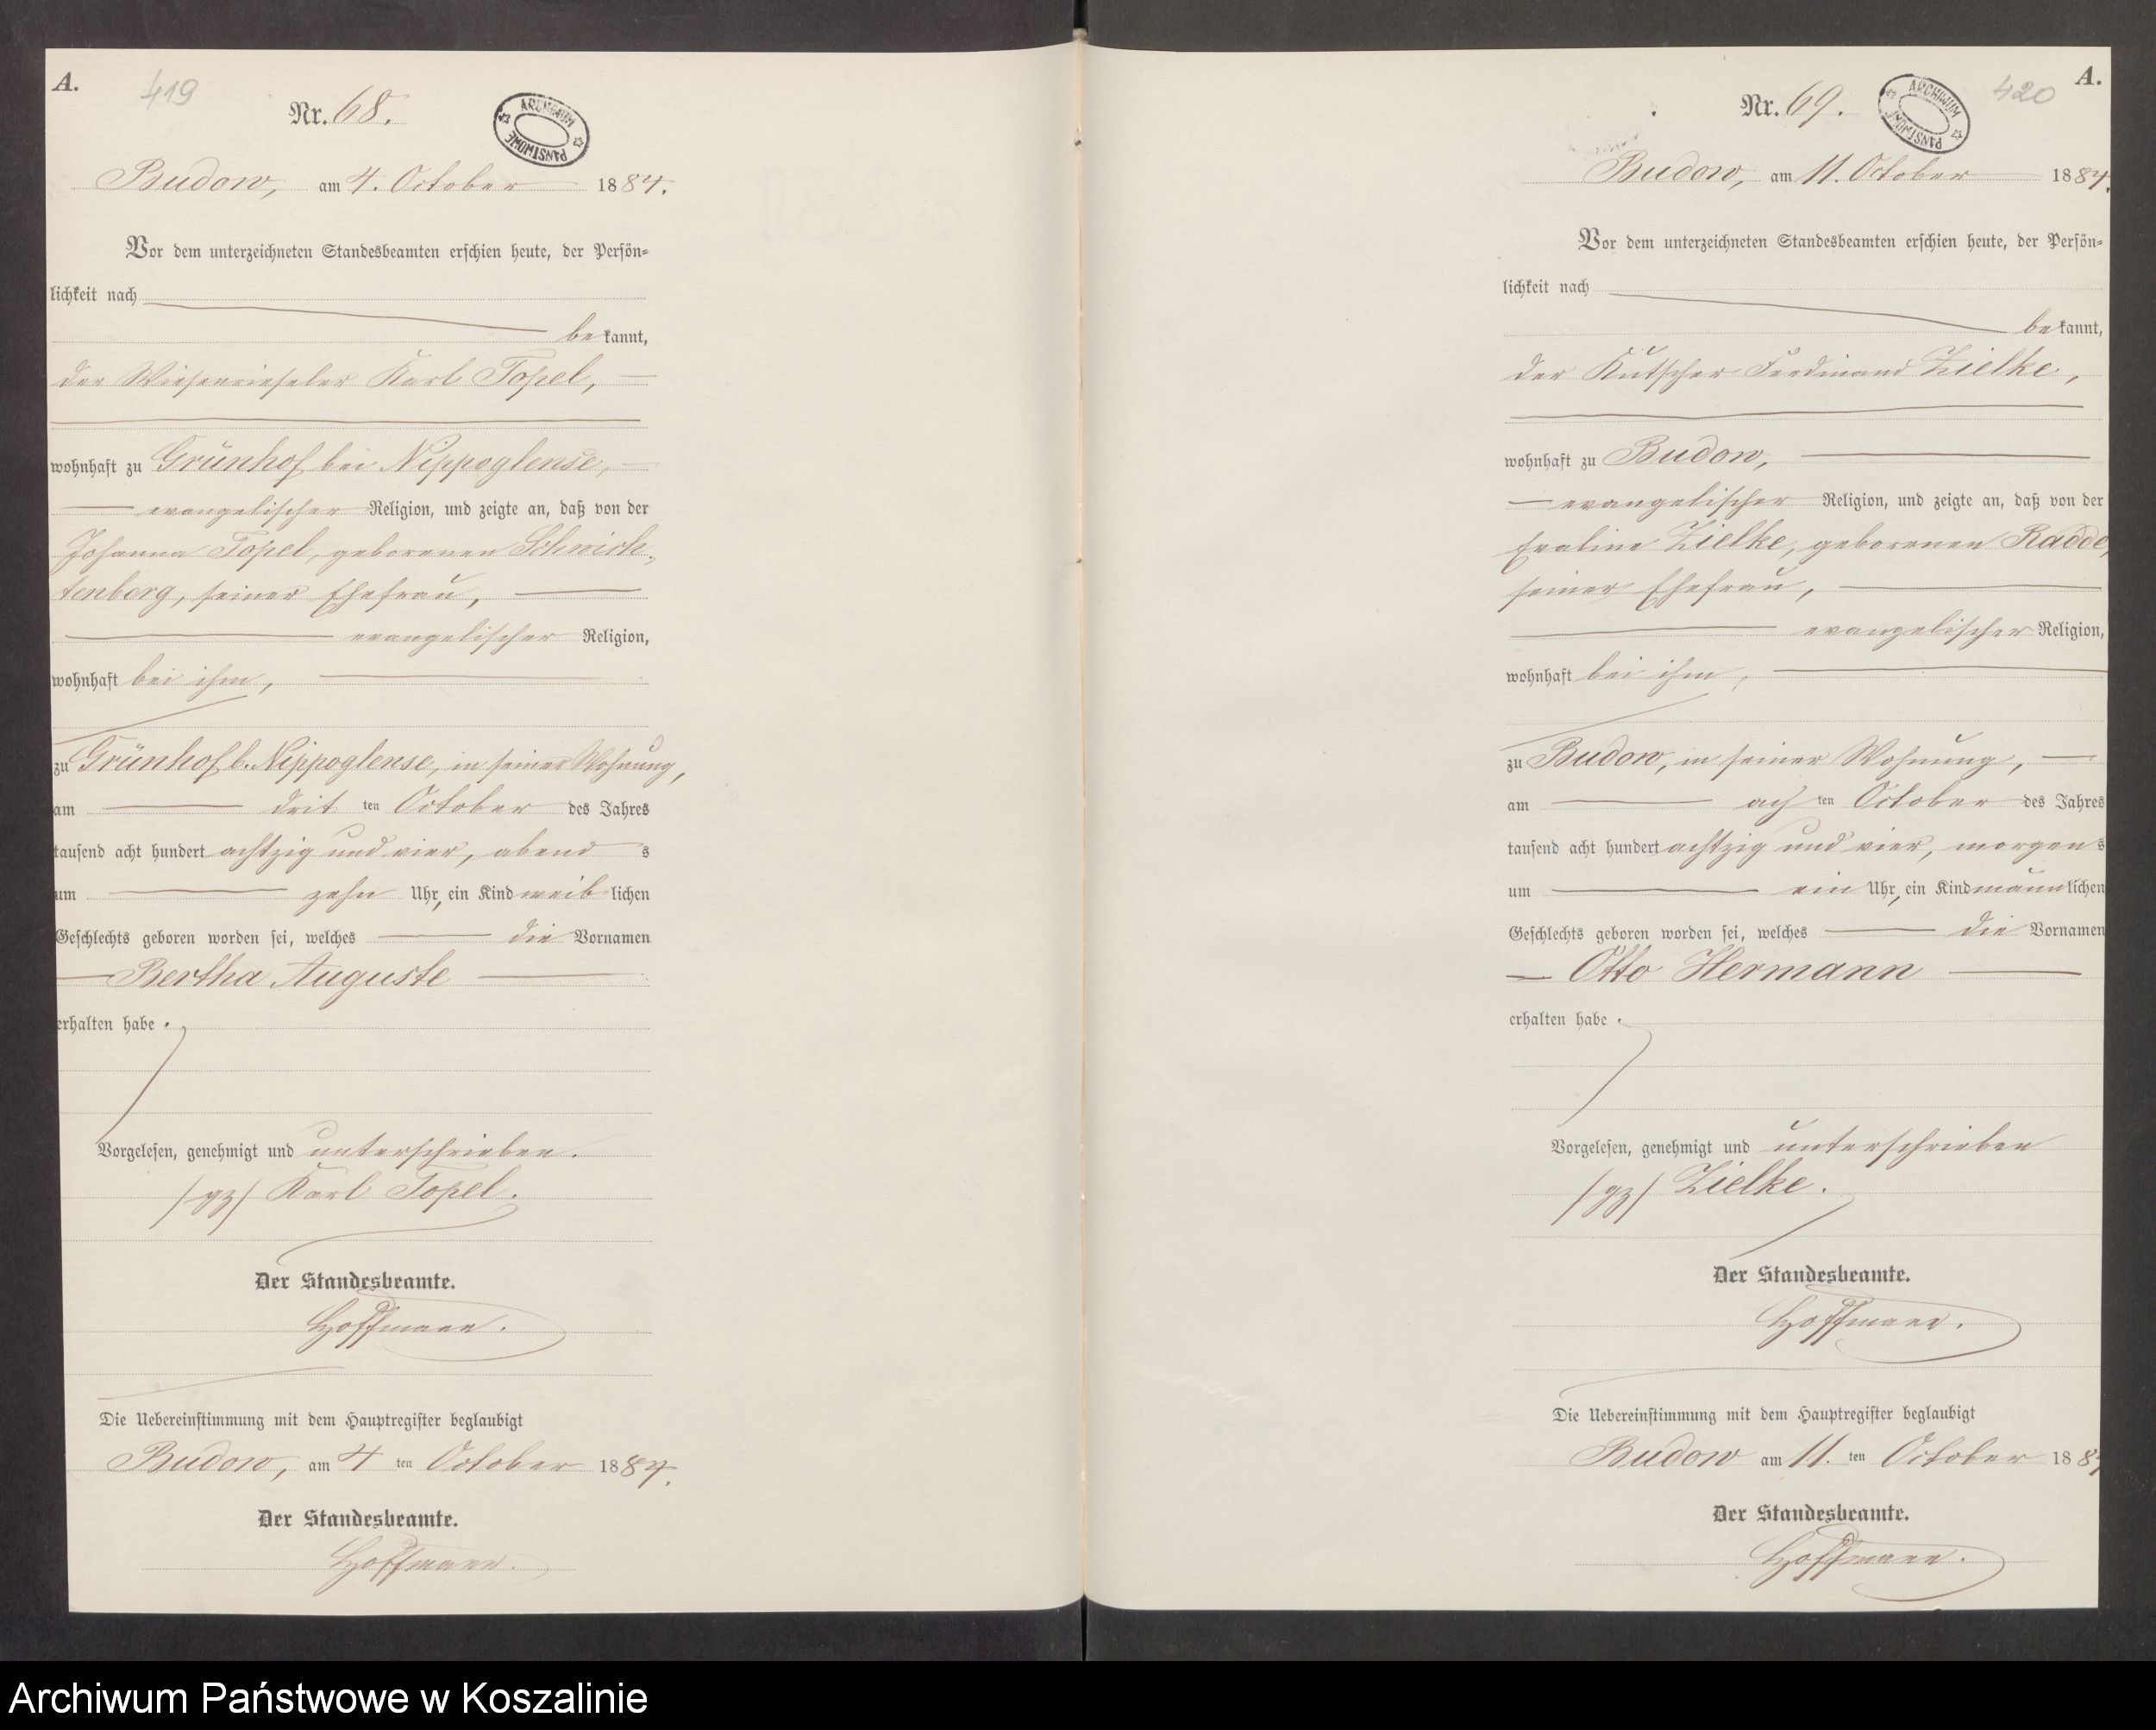 A.
419
Nr. 68.
ARCHIWUM PAŃSTWOWE
Budow, am 4. October 1884.
Vor dem unterzeichneten Standesbeamten erschien heute, der Persön=
lichkeit nach
bekannt,
der Wiesenrieseler Karl Topel,
wohnhaft zu Grünhof bei Nippoglense,
evangelischer Religion, und zeigte an, daß von der
Johanna Topel, geborenen Schwich=
tenberg, seiner Ehefrau,
evangelischer Religion,
wohnhaft bei ihm,
zu Grünhof b. Nippoglense, in seiner Wohnung,
am dritten October des Jahres
tausend acht hundert achtzig und vier, abends
um zehn Uhr, ein Kind weiblichen
Geschlechts geboren worden sei, welches die Vornamen
Bertha Auguste
erhalten habe.
Vorgelesen, genehmigt und unterschrieben.
/gz/ Karl Topel.
Der Standesbeamte.
Hoffmann.
Die Uebereinstimmung mit dem Hauptregister beglaubigt
Budow, am 4 ten October 1884.
Der Standesbeamte.
Hoffmann.
A.
420
Nr. 69.
ARCHIWUM PAŃSTWOWE
Budow, am 11. October 1884.
Vor dem unterzeichneten Standesbeamten erschien heute, der Persön=
lichkeit nach
bekannt,
der Kutscher Ferdinand Zielke,
wohnhaft zu Budow,
evangelischer Religion, und zeigte an, daß von der
Zielke, geborenen Radde,
seiner Ehefrau,
evangelischer Religion,
wohnhaft bei ihm,
zu Budow, in seiner Wohnung,
am achten October des Jahres
tausend acht hundert achtzig und vier, morgens
um ein Uhr, ein Kind männlichen
Geschlechts geboren worden sei, welches die Vornamen
Otto Hermann
erhalten habe.
Vorgelesen, genehmigt und unterschrieben
/gz/ Zielke.
Der Standesbeamte.
Hoffmann.
Die Uebereinstimmung mit dem Hauptregister beglaubigt
Budow am 11. ten October 1884
Der Standesbeamte.
Hoffmann.
Archiwum Państwowe w Koszalinie